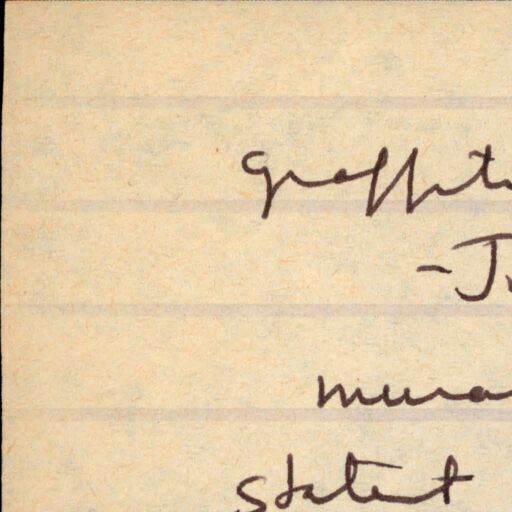 graffiti
- J
mura
statent